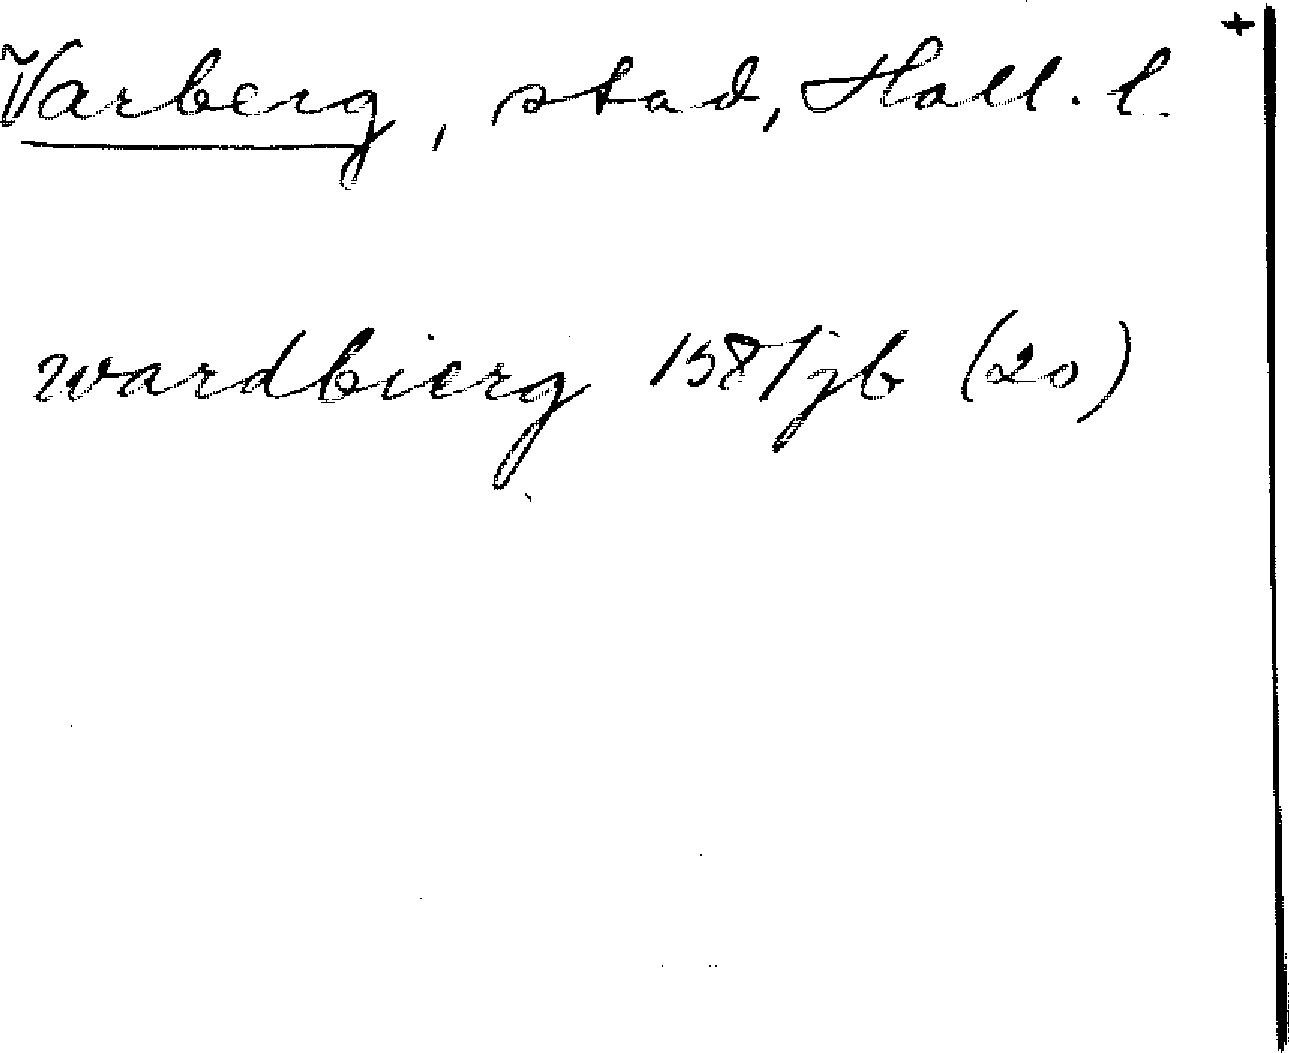 +
Varberg, stad, Hall. l.
wardbierg 1581 jb (20)